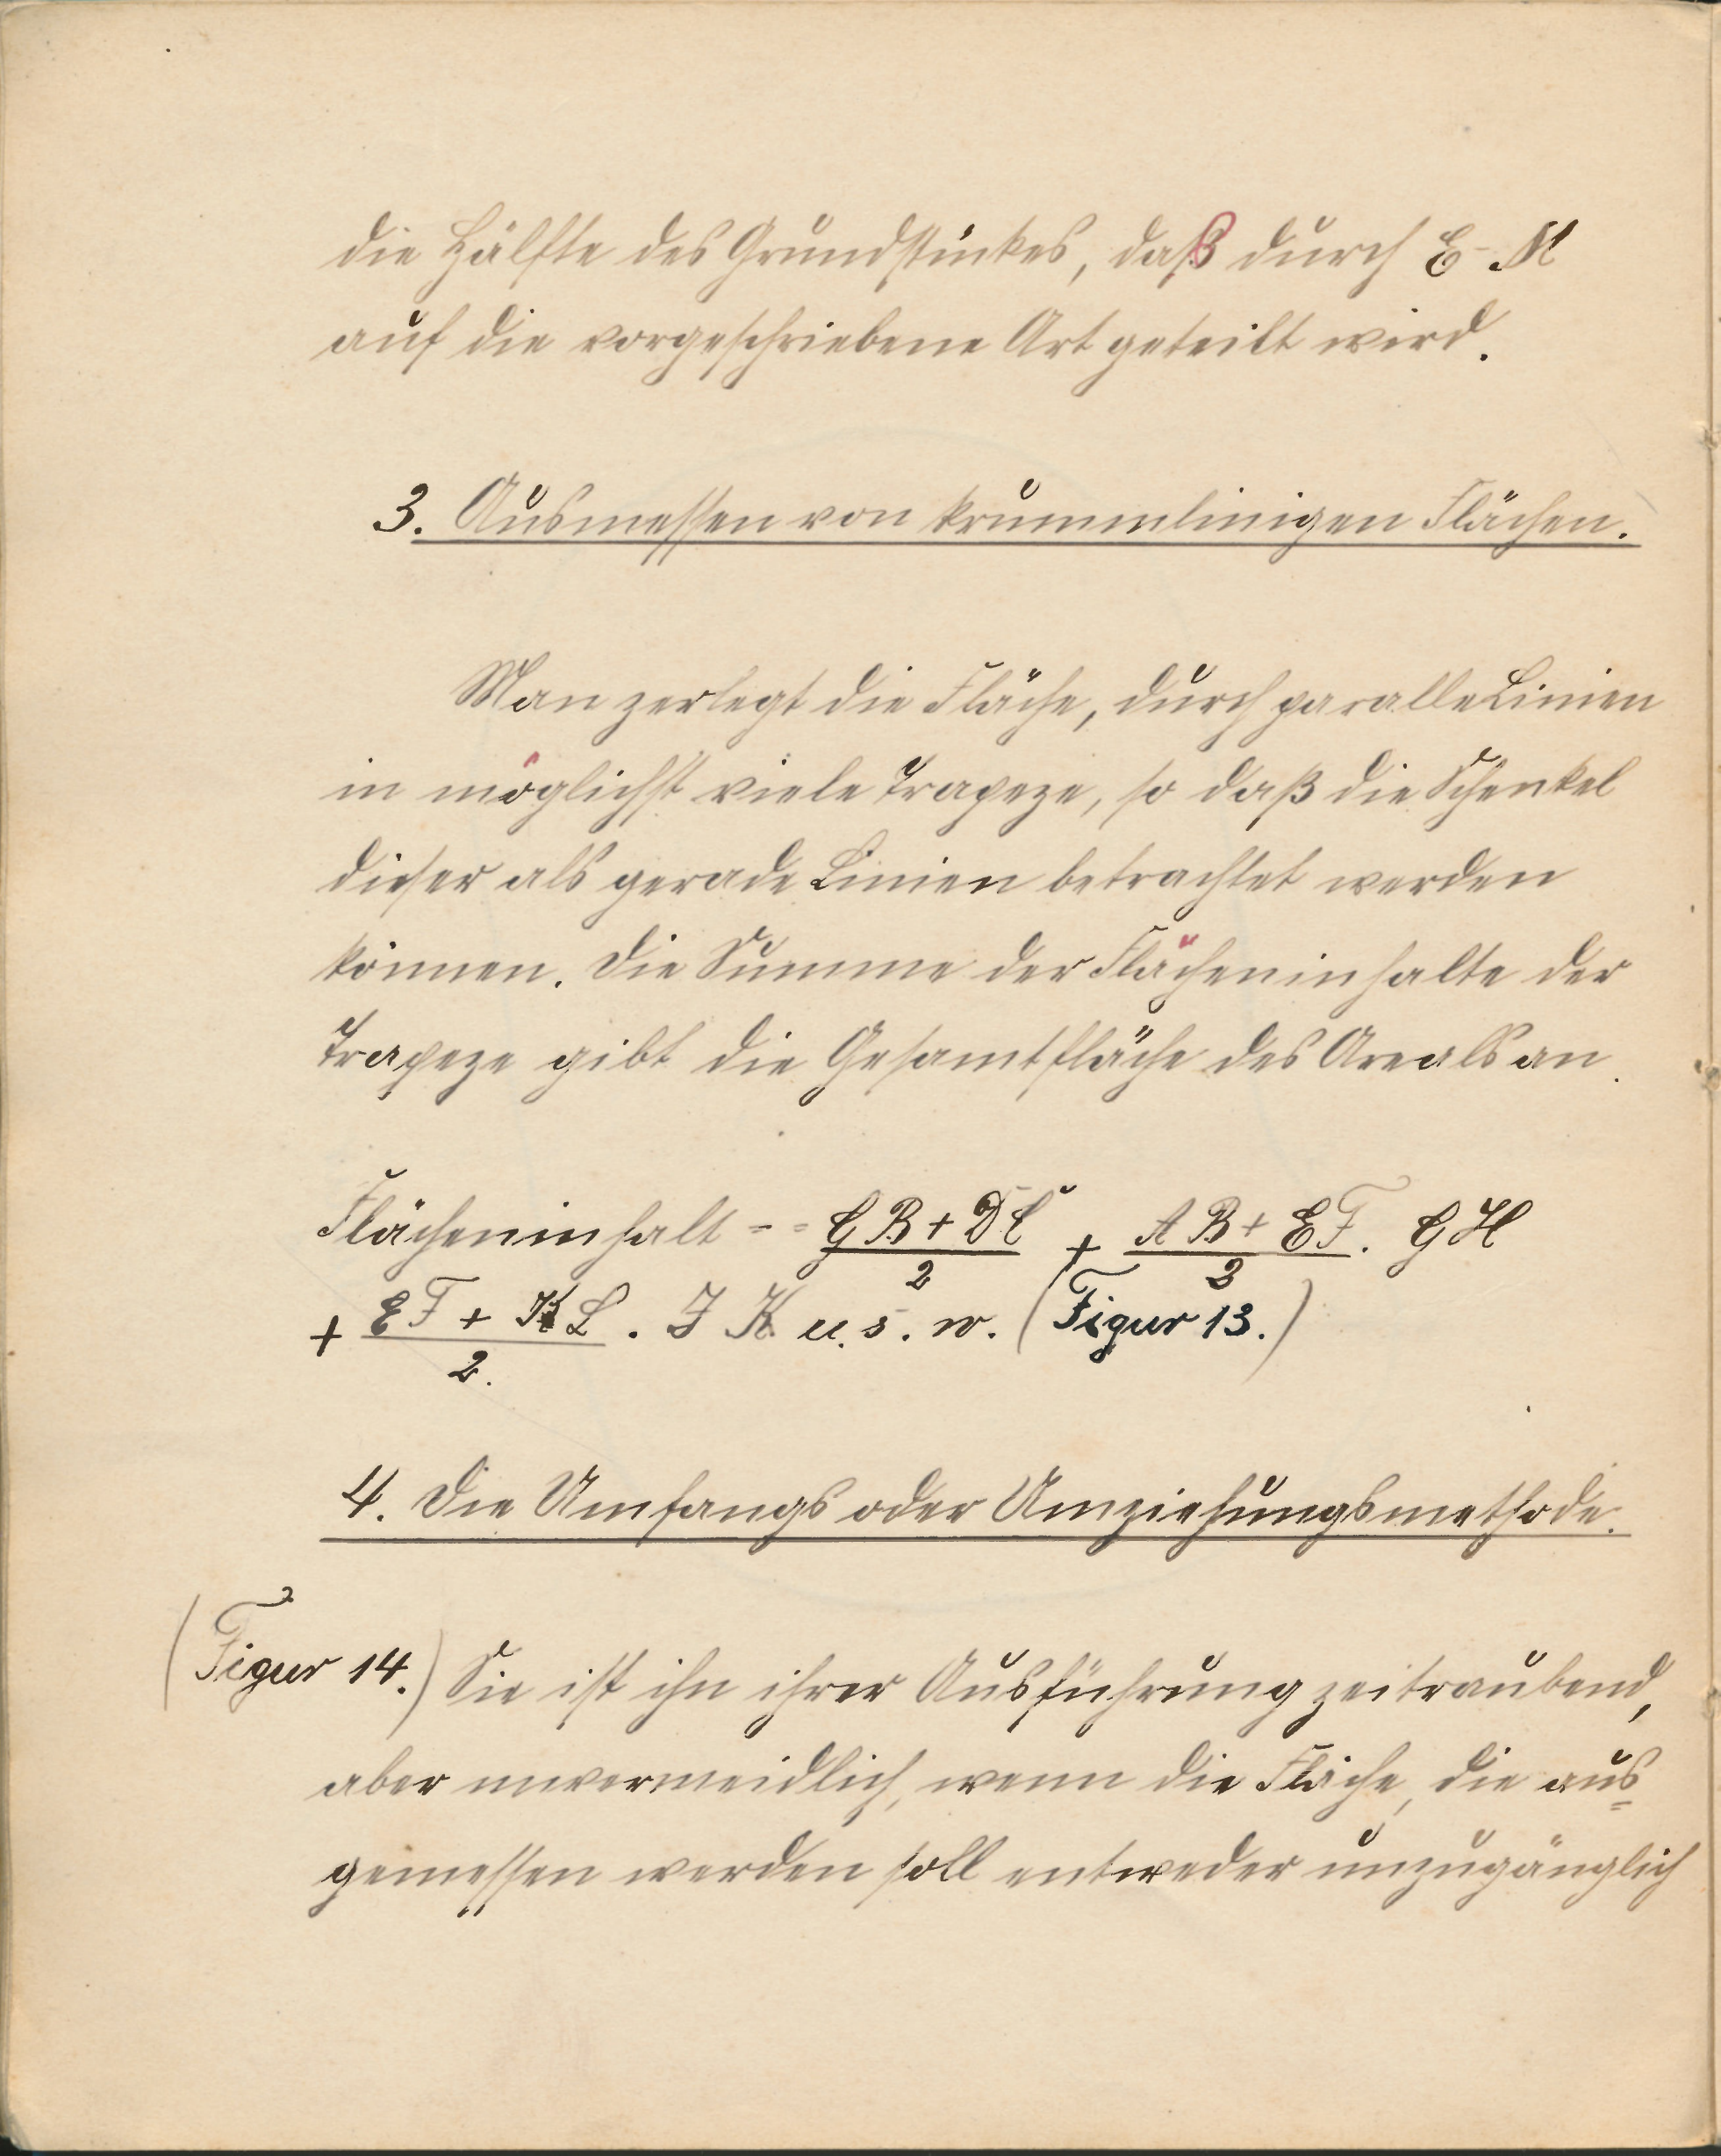 die Hälfte des Grundstückes, daß durch E-M
auf die vorgeschriebene Art geteilt wird.
3. Ausmessen von krummlinigen Flächen.
Man zerlegt die Fläche, durch paralle Linien
in möglichst viele Trapeze, so daß die Schenkel
dieser als gerade Linien betrachtet werden
können. Die Summe der Flächeninhalte der
Trapeze gibt die Gesamtfläche des Areals an.
Flächeninhalt = GB + DC / 2 + AB + EF / 2 . GH
+ EF + KL / 2 . JK u. s. w. (Figur 13.)
4. Die Umfangs oder Umziehungsmethode.
(Figur 14.) Sie ist ihn ihrer Ausführung zeitraubend,
aber unvermeidlich, wenn die Fläche, die aus=
gemessen werden soll entweder unzugänglich